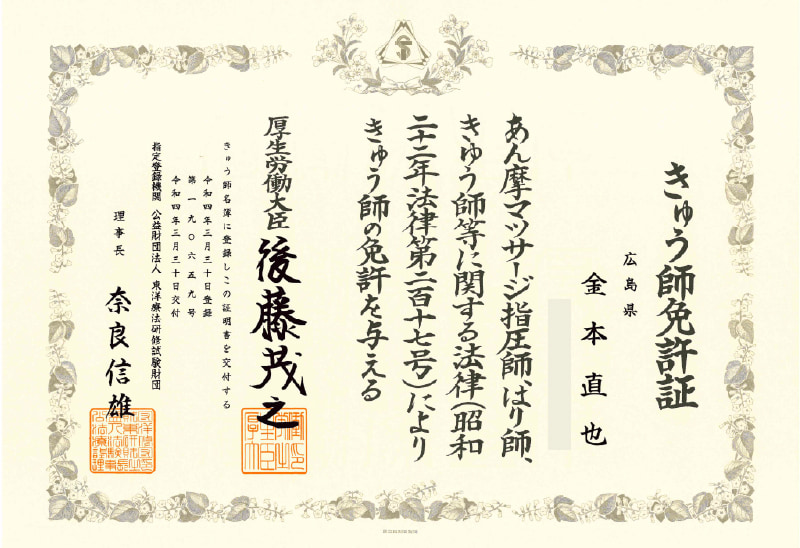 きゅう師免許証
広島県
金本直也
あん摩マッサージ指圧師、はり師、
きゆう師等に関する法律(昭和
二十二年法律第二百十七号)により
きゅう師の免許を与える
厚生労働大臣 後藤茂之
きゅう師名簿に登録しこの証明書を交付する
令和四年三月三十日登録
第一九〇六五九号
令和四年三月三十日交付
指定登録機関 公益財団法人 東洋療法研修試験財団
理事長 奈良信雄